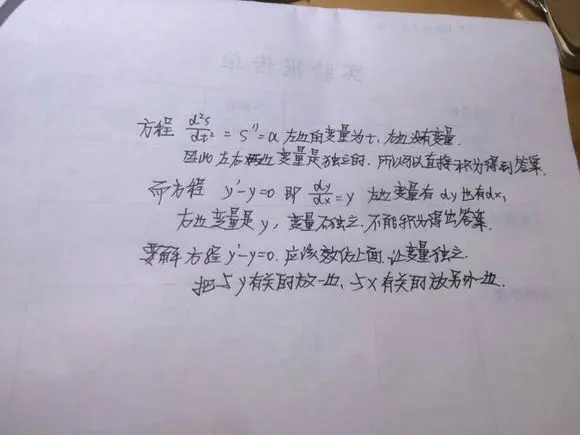 实验报告单
方程 d²s/dt² = s'' = a 左边的变量为t,右边没有变量.
因此左右两边变量是独立的.所以可以直接积分得到答案.
而方程 y'-y=0 即 dy/dx=y 左边变量有dy也有dx,
右边变量是y,变量不独立.不能积分得出答案.
要解方程y'-y=0.应该效仿上面.让变量独立.
把与y有关的放一边、与x有关的放另外一边.